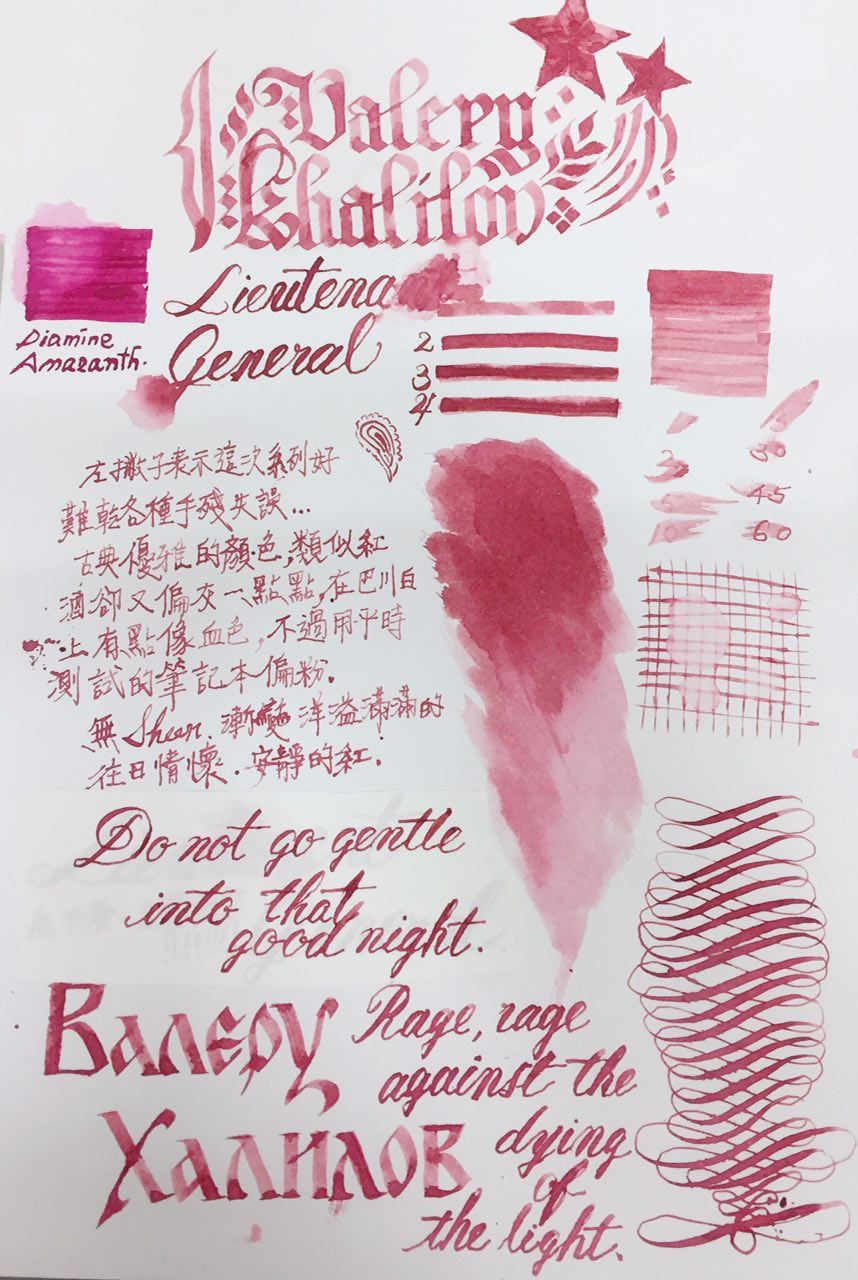 Valery
Khalilov
Diamine
Amaranth.
Lieutena
General
2
3
4
30
45
60
左撇子表示這次系列好
難乾各種手殘失誤...
古典優雅的顏色,類似紅
酒卻又偏灰一點點,在巴川白
上有點像血色,不過用平時
測試的筆記本偏粉.
無Sheen.漸變洋溢滿滿的
往日情懷.安靜的紅.
Do not go gentle
into that
good night.
Валеру
Халилов
Rage, rage
against the
dying
of
the light.